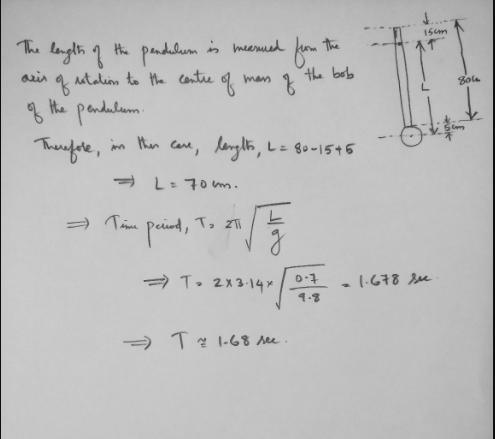 The length of the pendulum is measured from the
axis of rotation to the centre of mass of the bob
of the pendulum.
Therefore, in this case, length, L = 80-15+5
⇒ L = 70 cm.
⇒ Time period, T = 2π √(L/g)
⇒ T = 2×3.14× √(0.7/9.8) = 1.678 sec
⇒ T ≅ 1.68 sec.
15cm
L
80cm
5cm